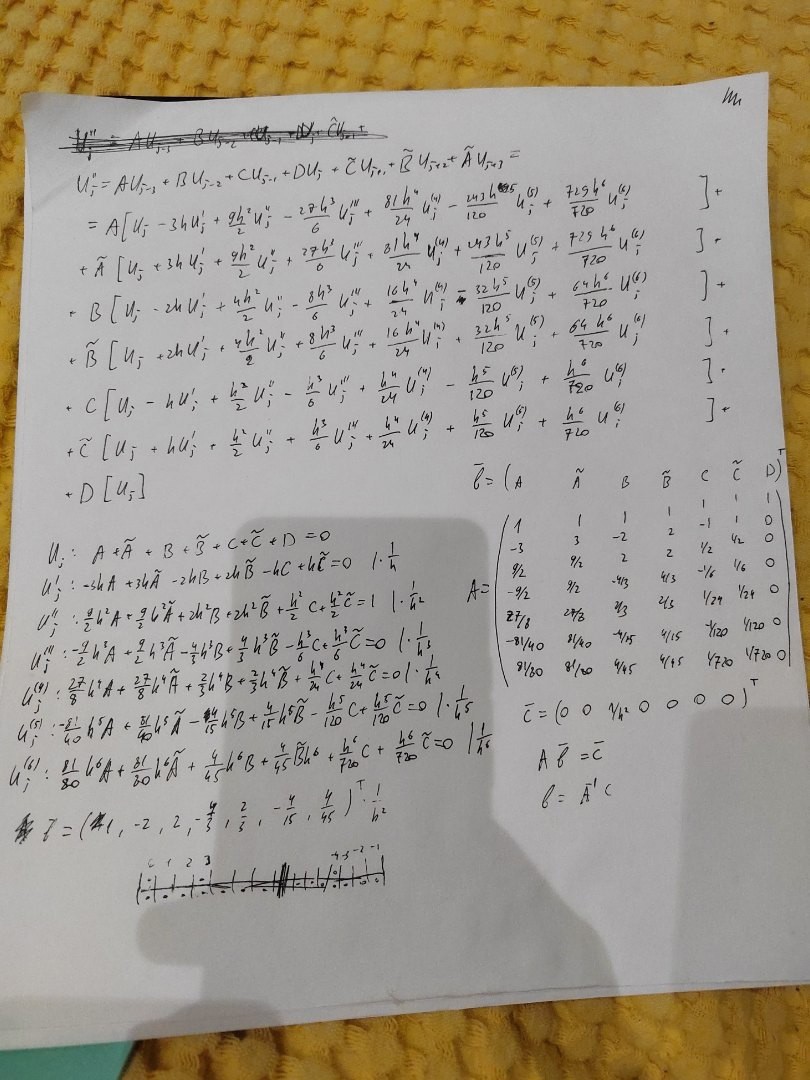 U_j'' = AU_{j-3} + BU_{j-2} + CU_{j-1} + DU_j + C̃U_{j+1} + B̃U_{j+2} + ÃU_{j+3} =
= A[U_j - 3hU_j' + 9h²/2 U_j'' - 27h³/6 U_j''' + 81h⁴/24 U_j^(4) - 243h⁵/120 U_j^(5) + 729h⁶/720 U_j^(6) ] +
+ Ã[U_j + 3hU_j' + 9h²/2 U_j'' + 27h³/6 U_j''' + 81h⁴/24 U_j^(4) + 243h⁵/120 U_j^(5) + 729h⁶/720 U_j^(6) ] +
+ B[U_j - 2hU_j' + 4h²/2 U_j'' - 8h³/6 U_j''' + 16h⁴/24 U_j^(4) - 32h⁵/120 U_j^(5) + 64h⁶/720 U_j^(6) ] +
+ B̃[U_j + 2hU_j' + 4h²/2 U_j'' + 8h³/6 U_j''' + 16h⁴/24 U_j^(4) + 32h⁵/120 U_j^(5) + 64h⁶/720 U_j^(6) ] +
+ C[U_j - hU_j' + h²/2 U_j'' - h³/6 U_j''' + h⁴/24 U_j^(4) - h⁵/120 U_j^(5) + h⁶/720 U_j^(6) ] +
+ C̃[U_j + hU_j' + h²/2 U_j'' + h³/6 U_j''' + h⁴/24 U_j^(4) + h⁵/120 U_j^(5) + h⁶/720 U_j^(6) ] +
+ D[U_j]
U_j: A + Ã + B + B̃ + C + C̃ + D = 0
U_j': -3hA + 3hÃ - 2hB + 2hB̃ - hC + hC̃ = 0 |·1/h
U_j'': 9/2 h²A + 9/2 h²Ã + 2h²B + 2h²B̃ + h²/2 C + h²/2 C̃ = 1 |·1/h²
U_j''': -9/2 h³A + 9/2 h³Ã - 4/3 h³B + 4/3 h³B̃ - h³/6 C + h³/6 C̃ = 0 |·1/h³
U_j^(4): 27/8 h⁴A + 27/8 h⁴Ã + 2/3 h⁴B + 2/3 h⁴B̃ + h⁴/24 C + h⁴/24 C̃ = 0 |·1/h⁴
U_j^(5): -81/40 h⁵A + 81/40 h⁵Ã - 4/15 h⁵B + 4/15 h⁵B̃ - h⁵/120 C + h⁵/120 C̃ = 0 |·1/h⁵
U_j^(6): 81/80 h⁶A + 81/80 h⁶Ã + 4/45 h⁶B + 4/45 B̃h⁶ + h⁶/720 C + h⁶/720 C̃ = 0 |1/h⁶
b̄ = (1, -2, 2, -4/3, 2/3, -4/15, 4/45)^T · 1/h²
1 2 3
-2 -1
b̄ = (A Ã B B̃ C C̃ D)^T
1 1 1 1 1 1 1
-3 3 -2 2 -1 1 0
9/2 9/2 2 2 1/2 1/2 0
A = -9/2 9/2 -4/3 4/3 -1/6 1/6 0
27/8 27/8 2/3 2/3 1/24 1/24 0
-81/40 81/40 -4/15 4/15 -1/120 1/120 0
81/80 81/80 4/45 4/45 1/720 1/720 0
c̄ = (0 0 1/h² 0 0 0 0)^T
A b̄ = c̄
b = A⁻¹ c